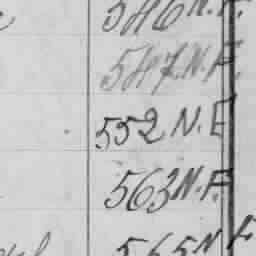 546 N.F.
547 N.F.
552 N.E
563 N.F.
565 N F